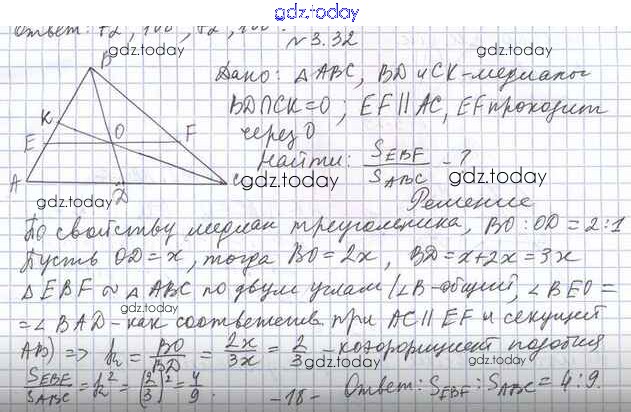 gdz.today
Ответ: 72, 108, 72, 108.
N 3.32
Дано: △ABC, BD и CK-медианы
BD∩CK=O; EF∥AC, EF проходит
через O
Найти: S_EBF / S_ABC - ?
B
K
E
O
F
A
D
C
Решение
По свойству медиан треугольника, BO:OD=2:1
Пусть OD=x, тогда BO=2x, BD=x+2x=3x
△EBF ∾ △ABC по двум углам (∠B-общий, ∠BEO=
=∠BAD-как соответств. при AC∥EF и секущей
AB) => k = BO/BD = 2x/3x = 2/3 - коэффициент подобия
S_EBF/S_ABC = k² = (2/3)² = 4/9.
Ответ: S_EBF : S_ABC = 4:9.
-18-
gdz.today
gdz.today
gdz.today
gdz.today
gdz.today
gdz.today
gdz.today
gdz.today
gdz.today
gdz.today
gdz.today
gdz.today
gdz.today
gdz.today